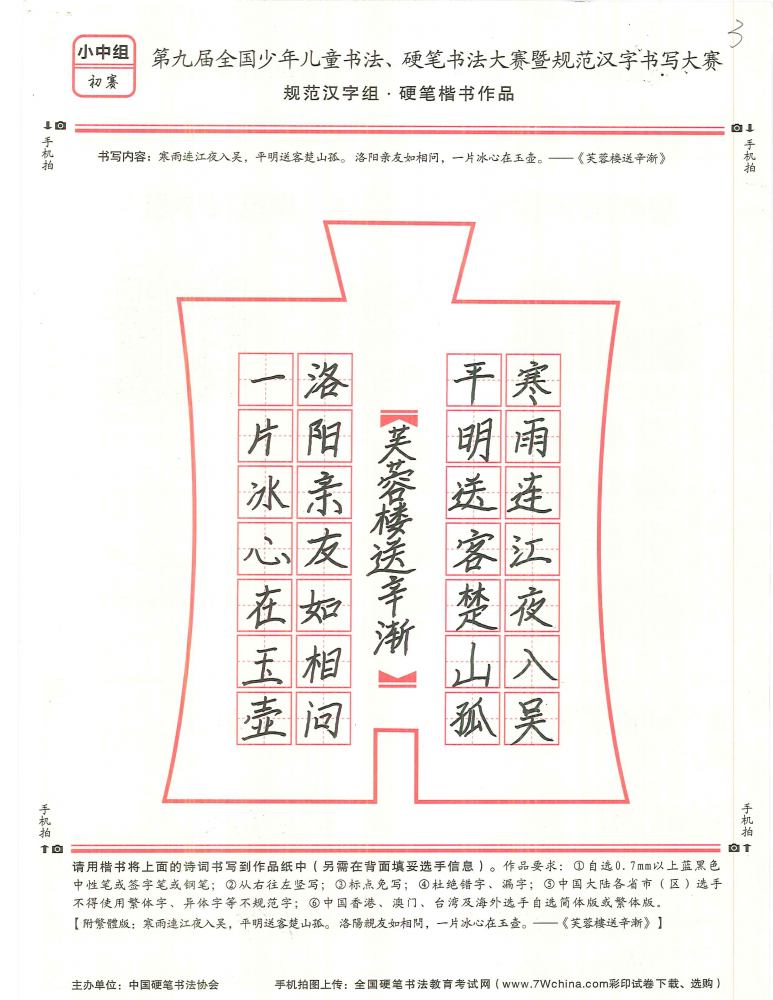 3
小中组
初赛
第九届全国少年儿童书法、硬笔书法大赛暨规范汉字书写大赛
规范汉字组·硬笔楷书作品
手机拍
手机拍
书写内容：寒雨连江夜入吴，平明送客楚山孤。洛阳亲友如相问，一片冰心在玉壶。——《芙蓉楼送辛渐》
寒雨连江夜入吴
平明送客楚山孤
芙蓉楼送辛渐
洛阳亲友如相问
一片冰心在玉壶
手机拍
手机拍
请用楷书将上面的诗词书写到作品纸中（另需在背面填妥选手信息）。作品要求：①自选0.7mm以上蓝黑色
中性笔或签字笔或钢笔；②从右往左竖写；③标点免写；④杜绝错字、漏字；⑤中国大陆各省市（区）选手
不得使用繁体字、异体字等不规范字；⑥中国香港、澳门、台湾及海外选手自选简体版或繁体版。
【附繁體版：寒雨連江夜入吳，平明送客楚山孤。洛陽親友如相問，一片冰心在玉壺。——《芙蓉樓送辛漸》】
主办单位：中国硬笔书法协会
手机拍图上传：全国硬笔书法教育考试网（www.7Wchina.com彩印试卷下载、选购）